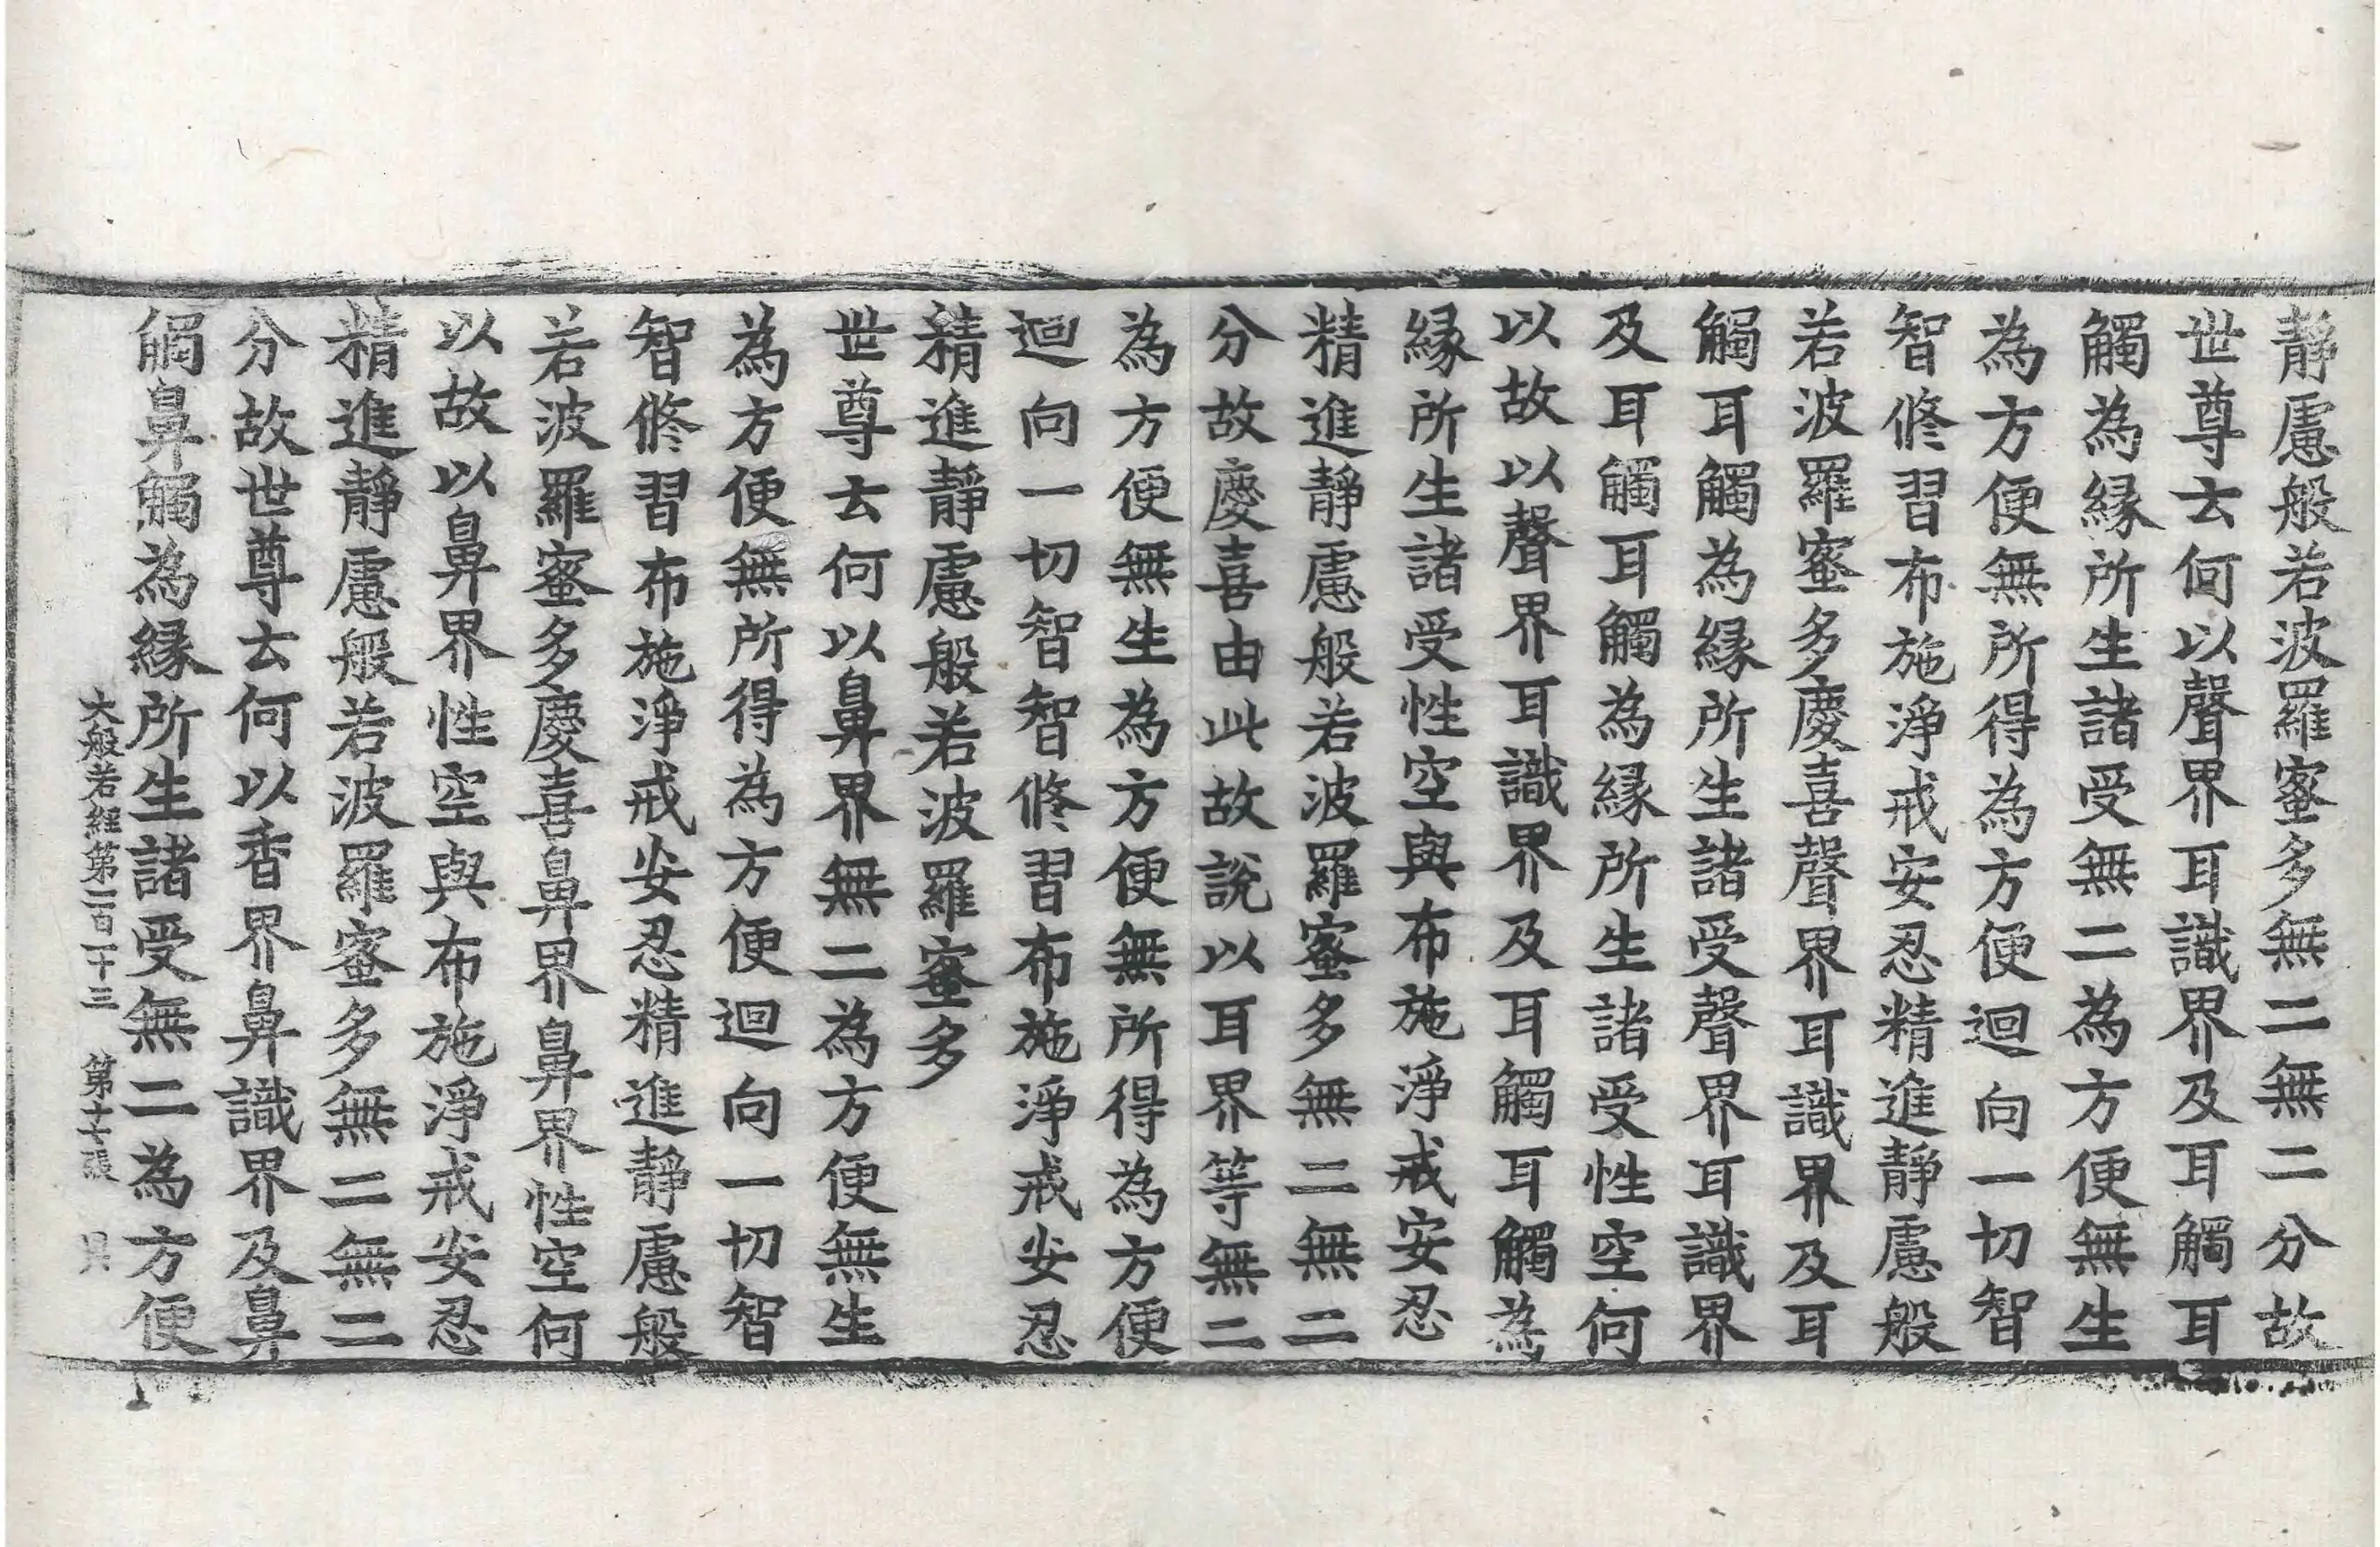 靜慮般若波羅蜜多無二無二分故
世尊云何以聲界耳識界及耳觸耳
觸為縁所生諸受無二為方便無生
為方便無所得為方便迴向一切智
智修習布施淨戒安忍精進靜慮般
若波羅蜜多慶喜聲界耳識界及耳
觸耳觸為縁所生諸受聲界耳識界
及耳觸耳觸為縁所生諸受性空何
以故以聲界耳識界及耳觸耳觸為
縁所生諸受性空與布施淨戒安忍
精進靜慮般若波羅蜜多無二無二
分故慶喜由此故說以耳界等無二
為方便無生為方便無所得為方便
迴向一切智智修習布施淨戒安忍
精進靜慮般若波羅蜜多
世尊云何以鼻界無二為方便無生
為方便無所得為方便迴向一切智
智修習布施淨戒安忍精進靜慮般
若波羅蜜多慶喜鼻界鼻界性空何
以故以鼻界性空與布施淨戒安忍
精進靜慮般若波羅蜜多無二無二
分故世尊云何以香界鼻識界及鼻
觸鼻觸為縁所生諸受無二為方便
大般若經第一百一十三 第十七張